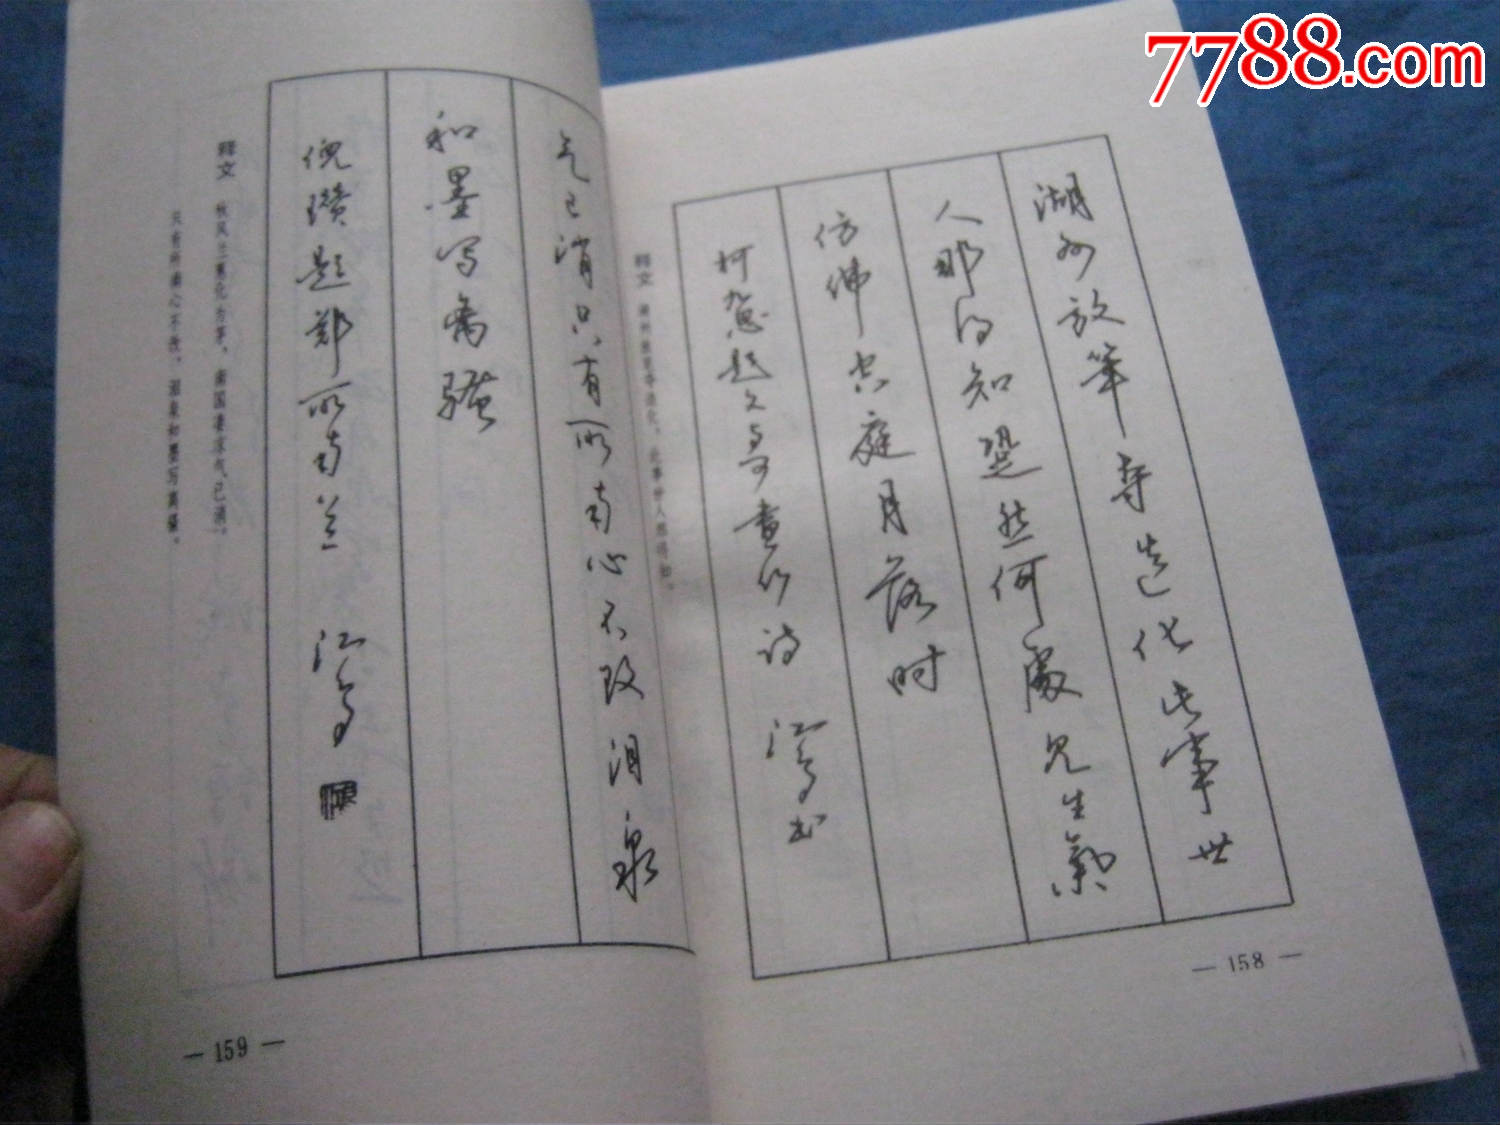 7788.com
湖州放笔夺造化此事世
人那得知跫然何處見生氣
仿佛空庭月落时
柯九思题文与可画竹诗 江鸟书
释文 湖州放笔夺造化，此事世人那得知。
— 158 —
气已消只有所南心不改泪泉
和墨写离骚
倪瓒题郑所南兰 江鸟
释文 秋风兰蕙化为茅，南国凄凉气已消。
只有所南心不改，泪泉和墨写离骚。
— 159 —